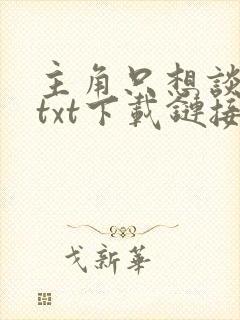 主角只想談
txt下載鏈接
戈新華